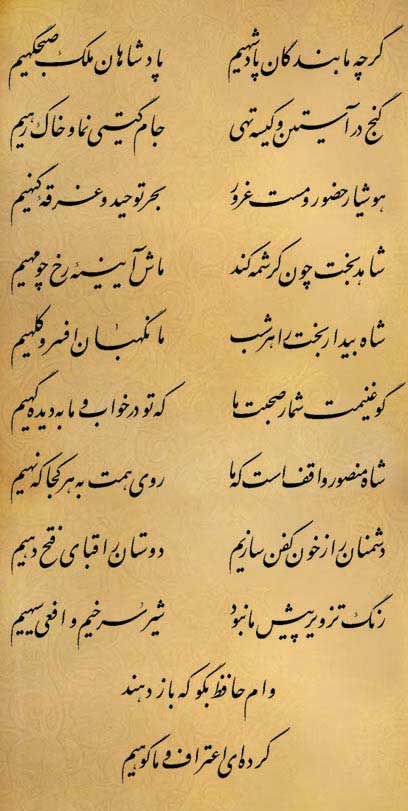 گرچه ما بندگان پادشهیم پادشاهان ملک صبحگهیم
گنج در آستین و کیسه تهی جام گیتی نما و خاک رهیم
هوشیار حضور و مست غرور بحر توحید و غرقه گنهیم
شاهد بخت چون کرشمه کند ماش آیینه رخ چو مهیم
شاه بیدار بخت را هر شب ما نگهبان افسر و کلهیم
گو غنیمت شمار صحبت ما که تو در خواب و ما به دیده گهیم
شاه منصور واقف است که ما روی همت به هر کجا که نهیم
دشمنان را ز خون کفن سازیم دوستان را قبای فتح دهیم
رنگ تزویر پیش ما نبود شیر سرخیم و افعی سیهیم
وام حافظ بگو که باز دهند
کرده‌ای اعتراف و ما گوهیم